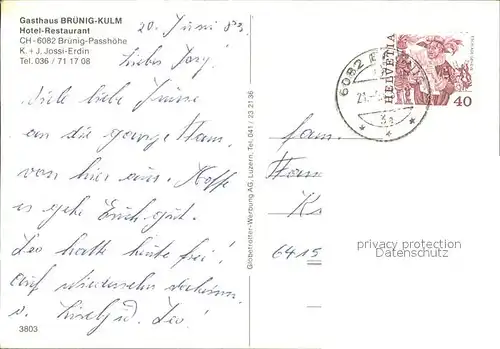 Gasthaus BRÜNIG-KULM
Hotel-Restaurant
CH-6082 Brünig-Passhöhe
K. + J. Jossi-Erdin
Tel. 036 / 71 17 08
20. Juni 83.
Liebes Jory!
Viele liebe Grüsse
an die ganze Fam.
von hier aus. Hoffe
es geht Euch gut.
Leo hatte heute frei!
Auf wiedersehn daheim
u. Lisely u. Leo!
3803
Globetrotter-Werbung AG, Luzern, Tel. 041 / 23 21 36
6082
21.
HELVETIA
40
Fam.
Fam
K
6415
privacy protection
Datenschutz